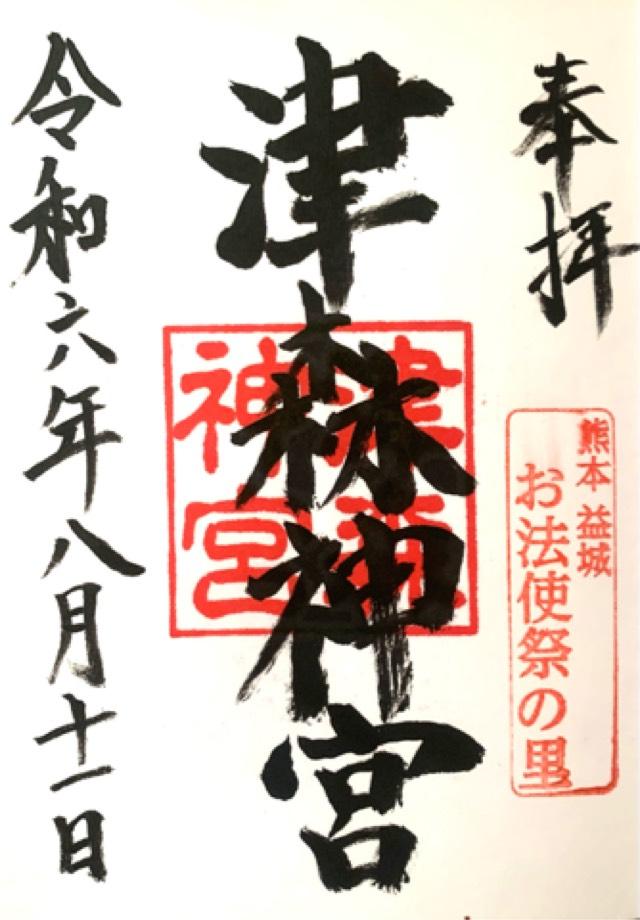 奉拝
熊本 益城
お法使祭の里
津森神宮
津森
神宮
令和六年八月十一日